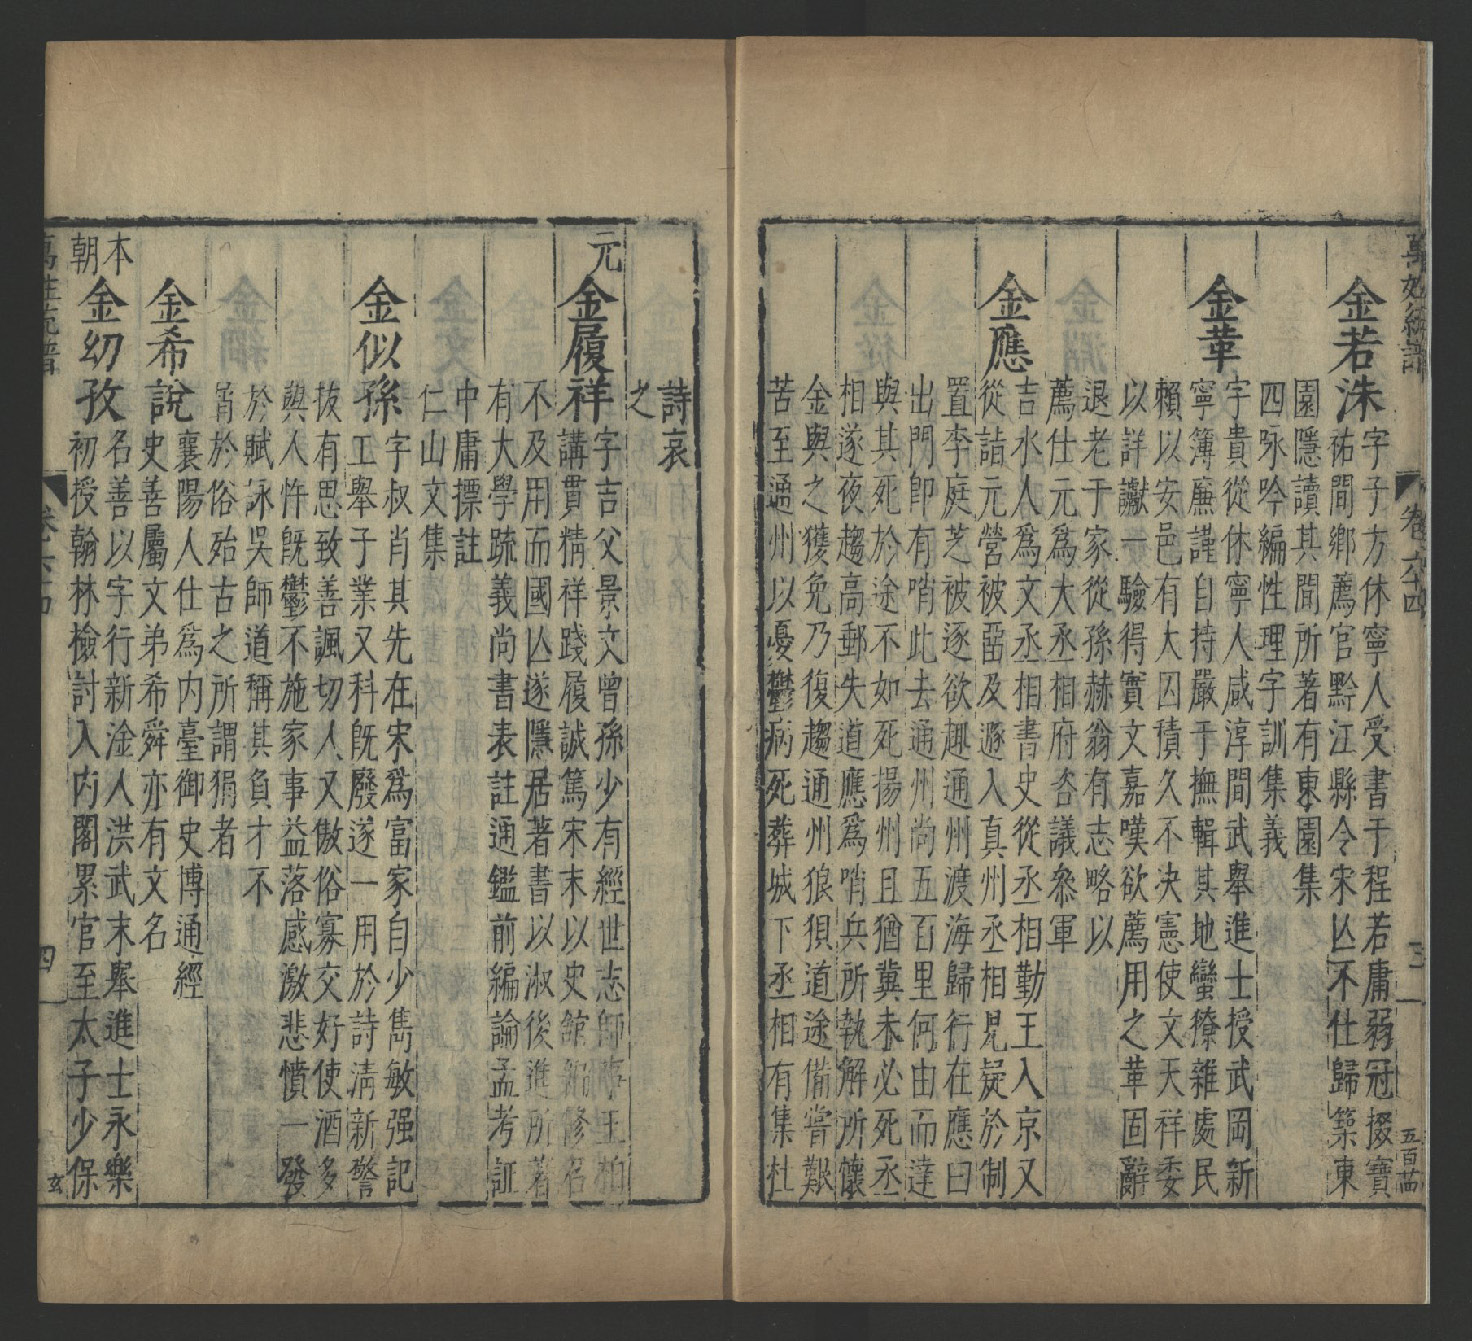 萬姓統譜
卷六十四
三
五百萬
金若洙
字子方休寧人受書于程若庸弱冠掇寶
祐間鄉薦官黔江縣令宋亾不仕歸築東
園隱讀其間所著有東園集
四咏吟編性理字訓集義
金革
字貴從休寧人咸淳間武舉進士授武岡新
寧簿廉謹自持嚴于撫輯其地蠻獠雜處民
賴以安邑有大囚積久不决憲使文天祥委
以詳讞一驗得實文嘉嘆欲薦用之革固辭
退老于家從孫赫翁有志略以
薦仕元爲大丞相府咨議叅軍
金應
吉水人爲文丞相書史從丞相勤王入京又
從詣元營被畱及遯入真州丞相見疑於制
置李庭芝被逐欲趣通州渡海歸行在應曰
出門卽有哨此去通州尚五百里何由而達
與其死於途不如死揚州且猶冀未必死丞
相遂夜趨高郵失道應爲哨兵所執解所懷
金與之獲免乃復趨通州狼狽道途備嘗艱
苦至通州以憂鬱病死葬城下丞相有集杜
詩哀
之
元
金履祥
字吉父景文曾孫少有經世志師事王柏
講貫精祥踐履誠篤宋末以史館編修召
不及用而國亾遂隱居著書以淑後進所著
有大學疏義尚書表註通鑑前編論孟考証
中庸摽註
仁山文集
金似孫
字叔肖其先在宋爲富家自少雋敏强記
工舉子業又科旣廢遂一用於詩清新警
拔有思致善諷切人又傲俗寡交好使酒多
與人忤旣鬱不施家事益落感激悲憤一發
於賦詠吳師道稱其負才不
屑於俗殆古之所謂狷者
金希說
襄陽人仕爲内臺御史博通經
史善屬文弟希舜亦有文名
本朝
金幼孜
名善以字行新淦人洪武末舉進士永樂
初授翰林檢討入内閣累官至太子少保
萬姓統譜
四
玄